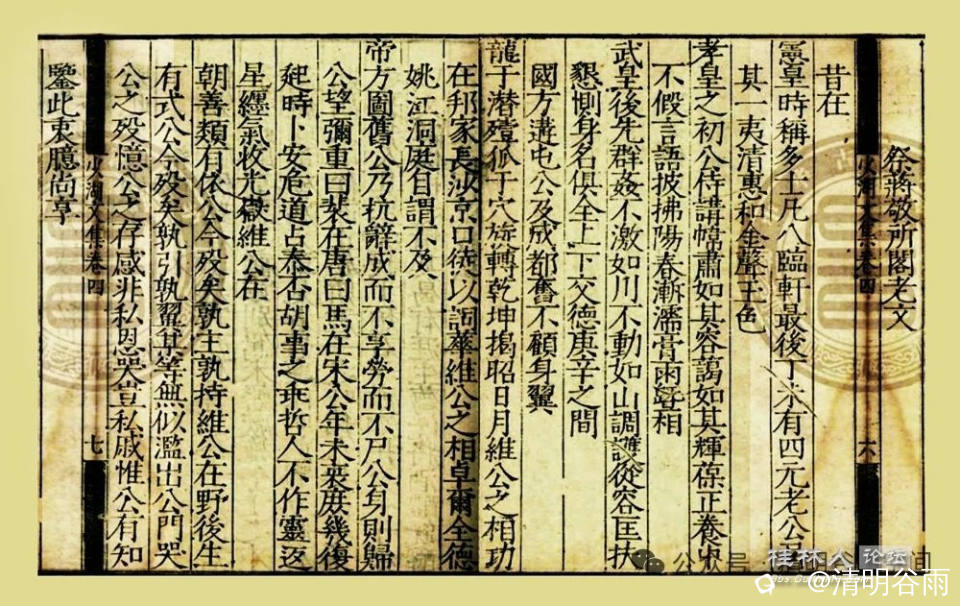 祭蔣敬所閣老文
昔在
憲皇時稱多士凡八臨軒最後丁未有四元老公
其一夷清惠和金聲玉色
孝皇之初公侍講幄肅如其容藹如其輝葆正養中
不假言語披拂陽春漸濡膏雨 相
武皇後先群姦不激如川不動如山調護從容匡扶
懇惻身名俱全上下交德庚辛之間
國方遘屯公及成都奮不顧身翼
文集卷四 六
龍于潛殪狐于穴旋轉乾坤揭昭日月維公之相功
在邦家長沙京口徒以詞華維公之相卓爾全德
姚江洞庭自謂不及
帝方圖舊公乃抗辭成而不享勞而不尸公身則歸
公望彌重曰裴在唐曰馬在宋公年未衰庶幾復
起時卜安危道占泰否胡事之乖哲人不作靈返
星纏氣收光嶽維公在
朝善類有依公今歿矣孰主孰持維公在野後生
有式公今歿矣孰引孰翼某等無似濫出公門哭
公之歿憶公之存感非私恩哭豈私戚惟公有知
文集卷四 七
鑒此衷臆尚享
公众号
桂林人论坛
@清明谷雨